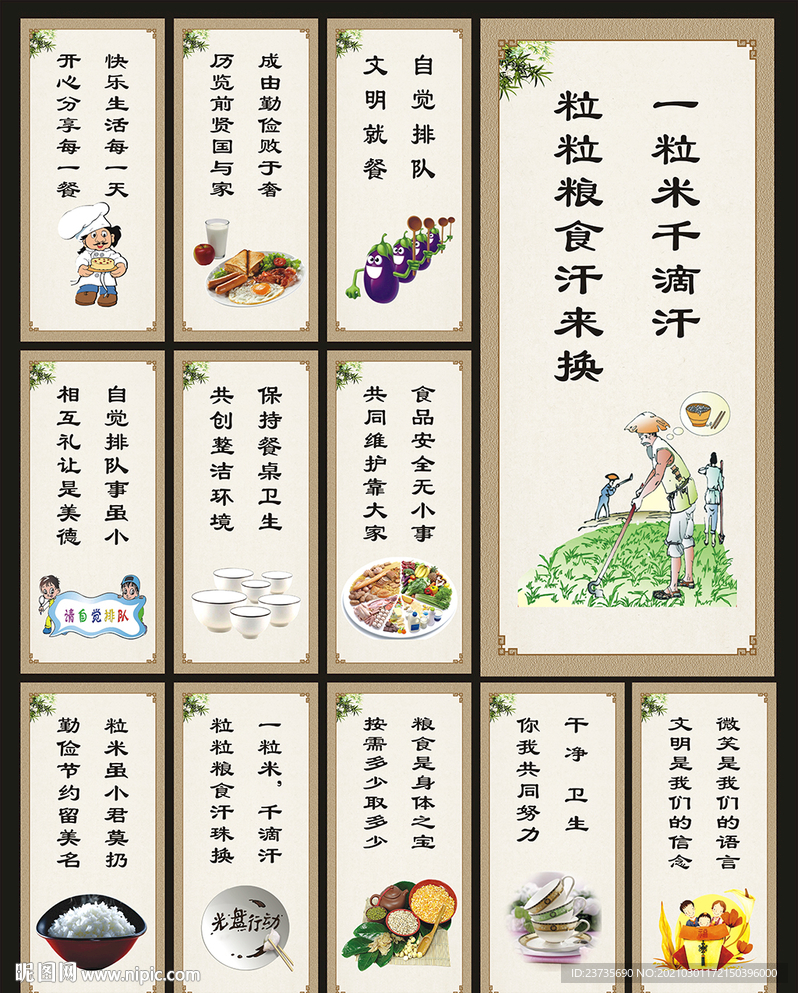 快乐生活每一天
开心分享每一餐
成由勤俭败于奢
历览前贤国与家
自觉排队
文明就餐
一粒米千滴汗
粒粒粮食汗来换
自觉排队事虽小
相互礼让是美德
请自觉排队
保持餐桌卫生
共创整洁环境
食品安全无小事
共同维护靠大家
粒米虽小君莫扔
勤俭节约留美名
一粒米，千滴汗
粒粒粮食汗珠换
光盘行动
粮食是身体之宝
按需多少取多少
干净 卫生
你我共同努力
微笑是我们的语言
文明是我们的信念
昵图网 www.nipic.com
ID:23735690 NO:20210301172150396000